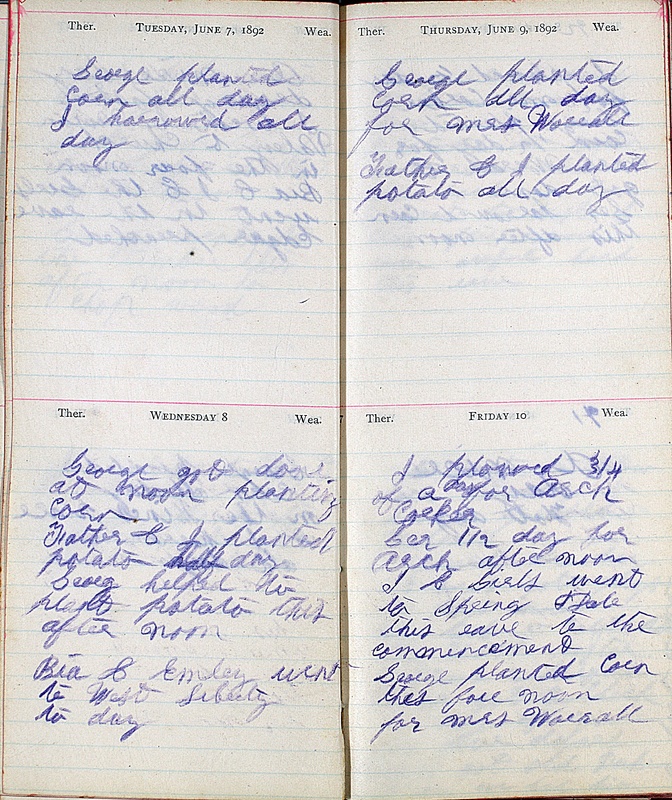 Ther. TUESDAY, JUNE 7, 1892 Wea.
George planted
Corn all day
I harrowed all
day
Ther. WEDNESDAY 8 Wea.
George got done
at noon planting
Corn
Father & I planted
potato half day
Georg helped to
plant potato this
after noon
Bia & Emley went
to West Liberty
to day
Ther. THURSDAY, JUNE 9, 1892 Wea.
George planted
Corn all day
for Mrs Worrall
Father & I planted
potato all day
Ther. FRIDAY 10 Wea.
I plowed 3/4
of a day for Arch
Corker
1/2 day for
Arch after noon
I & Girls went
to Spring Dale
this eave to the
commencement
George planted Corn
this fore noon
for Mrs Worrall